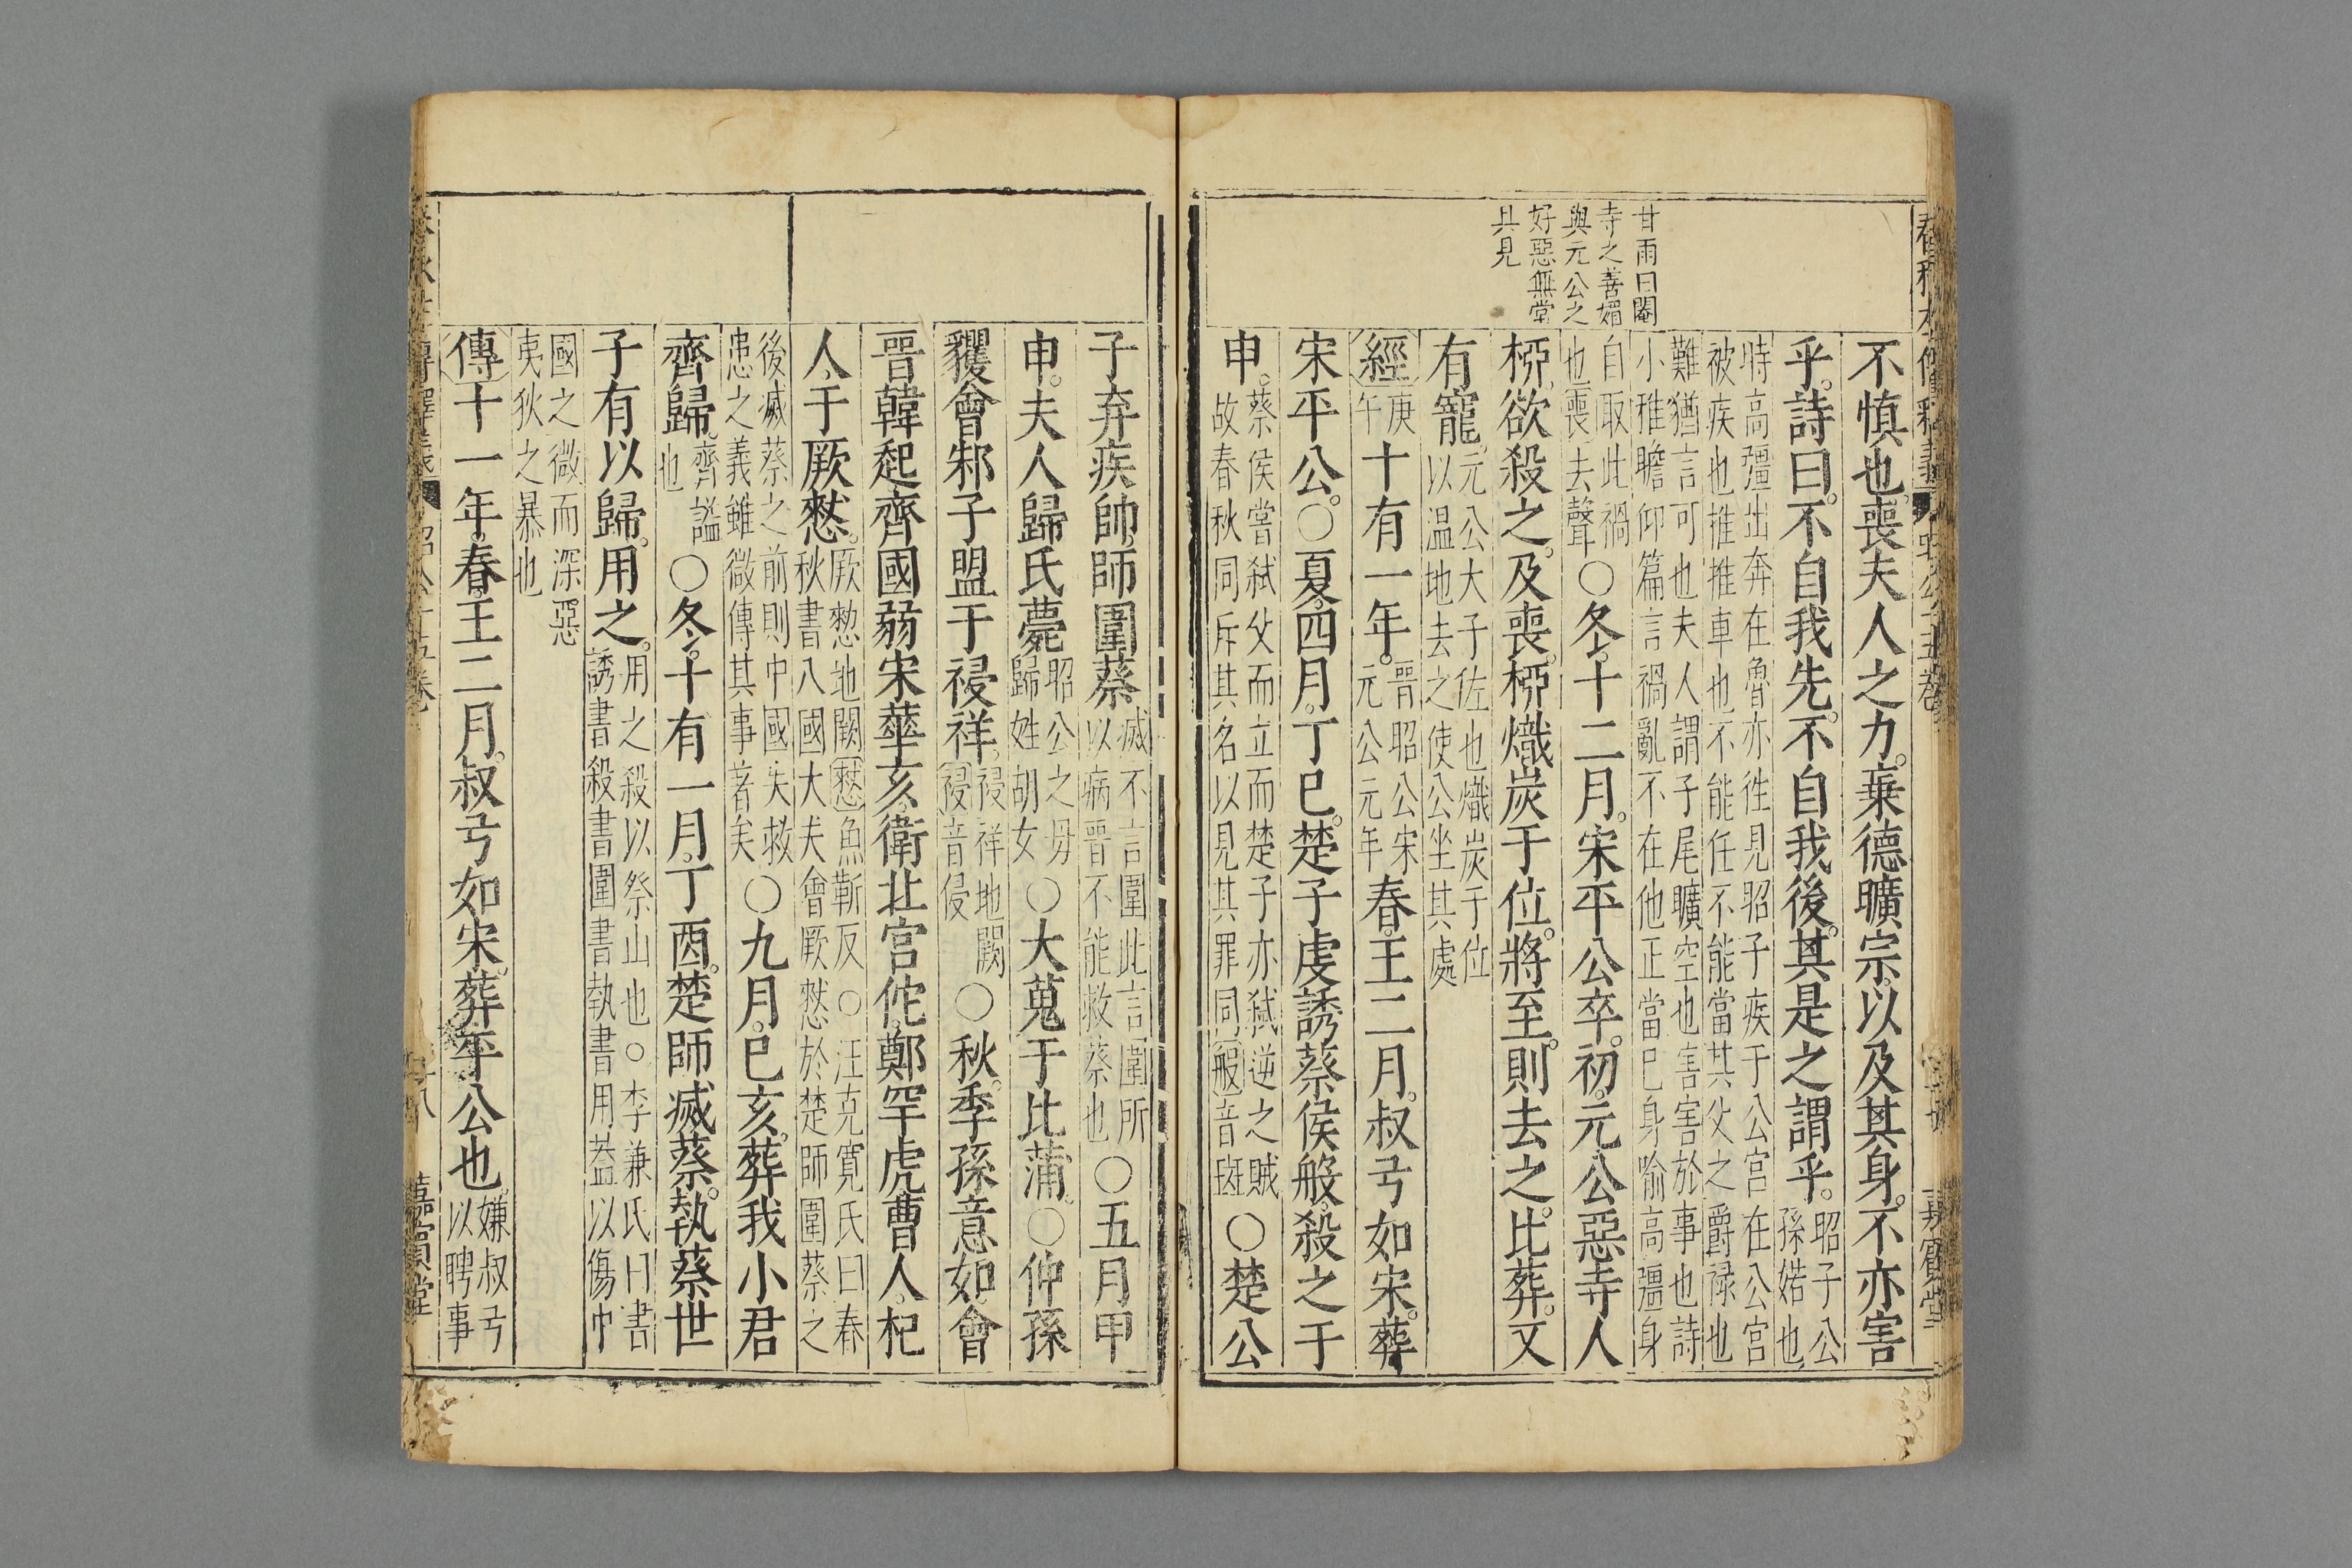 甘雨曰閹
寺之善媚
與元公之
好惡無常
具見
不慎也喪夫人之力。棄德曠宗。以及其身。不亦害
乎。詩曰。不自我先。不自我後。其是之謂乎。昭子公孫婼也
時高彊出奔在魯亦徃見昭子疾于公宮在公宮
被疾也推推車也不能任不能當其父之爵祿也
難猶言可也夫人謂子尾曠空也害害於事也詩
小雅瞻仰篇言禍亂不在他正當已身喻高彊身
自取此禍也喪去聲〇冬。十二月。宋平公卒。初。元公惡寺人
栁。欲殺之。及喪。栁熾炭于位。將至。則去之。比葬。又
有寵。元公大子佐也熾炭于位以温地去之使公坐其處
經庚午十有一年。晉昭公宋元公元年春。王二月。叔弓如宋。葬
宋平公。〇夏。四月。丁巳。楚子虔誘蔡侯般。殺之于
申。蔡侯嘗弑父而立而楚子亦弑逆之賊故春秋同斥其名以見其罪同般音班〇楚公
子弃疾帥師圍蔡滅不言圍此言圍所以病晉不能救蔡也〇五月甲
申。夫人歸氏薨昭公之母歸姓胡女〇大蒐于比蒲。〇仲孫
貜會邾子盟于祲祥。祲祥地闕祲音侵〇秋。季孫意如。會
晉韓起齊國弱宋華亥衛北宮佗。鄭罕虎曹人。杞
人于厥憖。厥憖地闕憖魚靳反〇汪克寛氏曰春秋書八國大夫會厥憖於楚師圍蔡之
後滅蔡之前則中國失救患之義雖微傳其事著矣〇九月。巳亥。葬我小君
齊歸。齊謚也〇冬。十有一月。丁酉。楚師滅蔡。執蔡世
子有以歸。用之。用之殺以祭山也〇李兼氏曰書誘書殺書圍書執書用葢以傷中
國之微而深惡夷狄之暴也
傳十一年。春。王二月。叔弓如宋。葬平公也。嫌叔弓以聘事
嘉賓堂